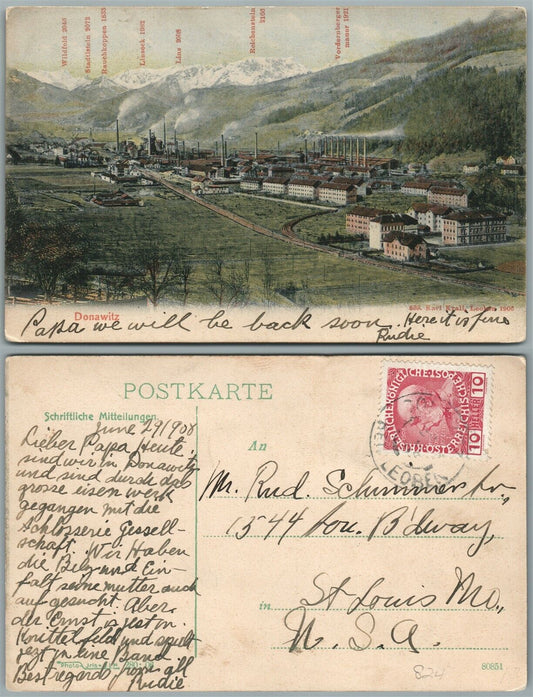 Wildfeld 2046
Stadelstein 2072
Rauchkoppen 1833
Linseck 1982
Lins 2008
Reichenstein 2166
Vordernberger
mauer 1921
Donawitz
Karl Krall, Leoben 1906
Papa we will be back soon. Here it is fine
Rudie
POSTKARTE
Schriftliche Mitteilungen.
June 29/908
Lieber Papa Heute,
sind wir in Donawitz
und sind durch das
grosse eisen werk
gegangen mit die
Schlosserie Gesell-
schaft. Wir Haben
die Belz und Ein-
falt seine mutter auch
auf gesucht. Aber
der Ernst is jest in
Knittelfeld und spult
jezt in eine Band
Best regards from all
Rudie
An
Mr. Rud. Schimmer Sr.,
1544 Sou. B'dway,
in
St Louis Mo.,
U.S.A.
10 10
HELLER
LEOBEN
824
80851